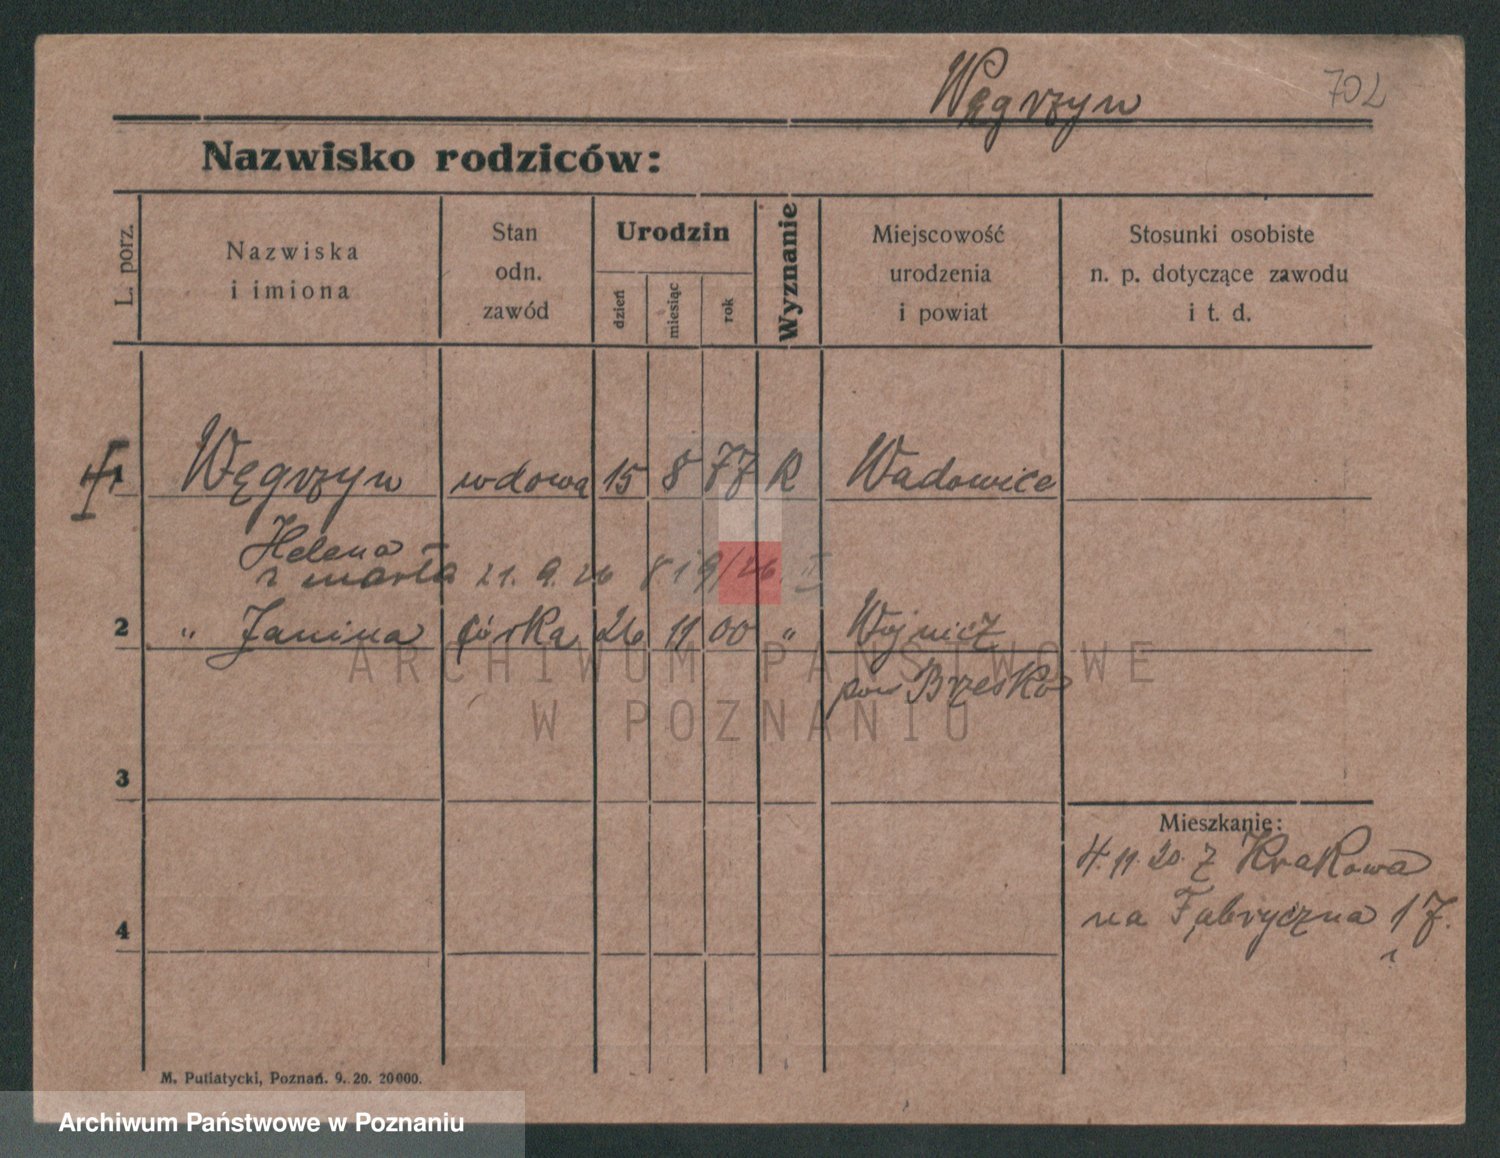 Węgrzyn 702
Nazwisko rodziców:
L. porz.
Nazwiska
i imiona
Stan
odn.
zawód
Urodzin
dzień
miesiąc
rok
Wyznanie
Miejscowość
urodzenia
i powiat
Stosunki osobiste
n. p. dotyczące zawodu
i t. d.
1 Węgrzyn wdowa 15 8 77 R Wadowice
Helena
zmarła 21. 9. 26 819/26 II
2 " Janina córka 26 11 00 " Wojnicz
pow Brzesko
ARCHIWUM PAŃSTWOWE
W POZNANIU
3
Mieszkanie:
4. 11. 20. z Krakowa
na Fabryczna 17.
4
M. Putiatycki, Poznań. 9. 20. 20000.
Archiwum Państwowe w Poznaniu